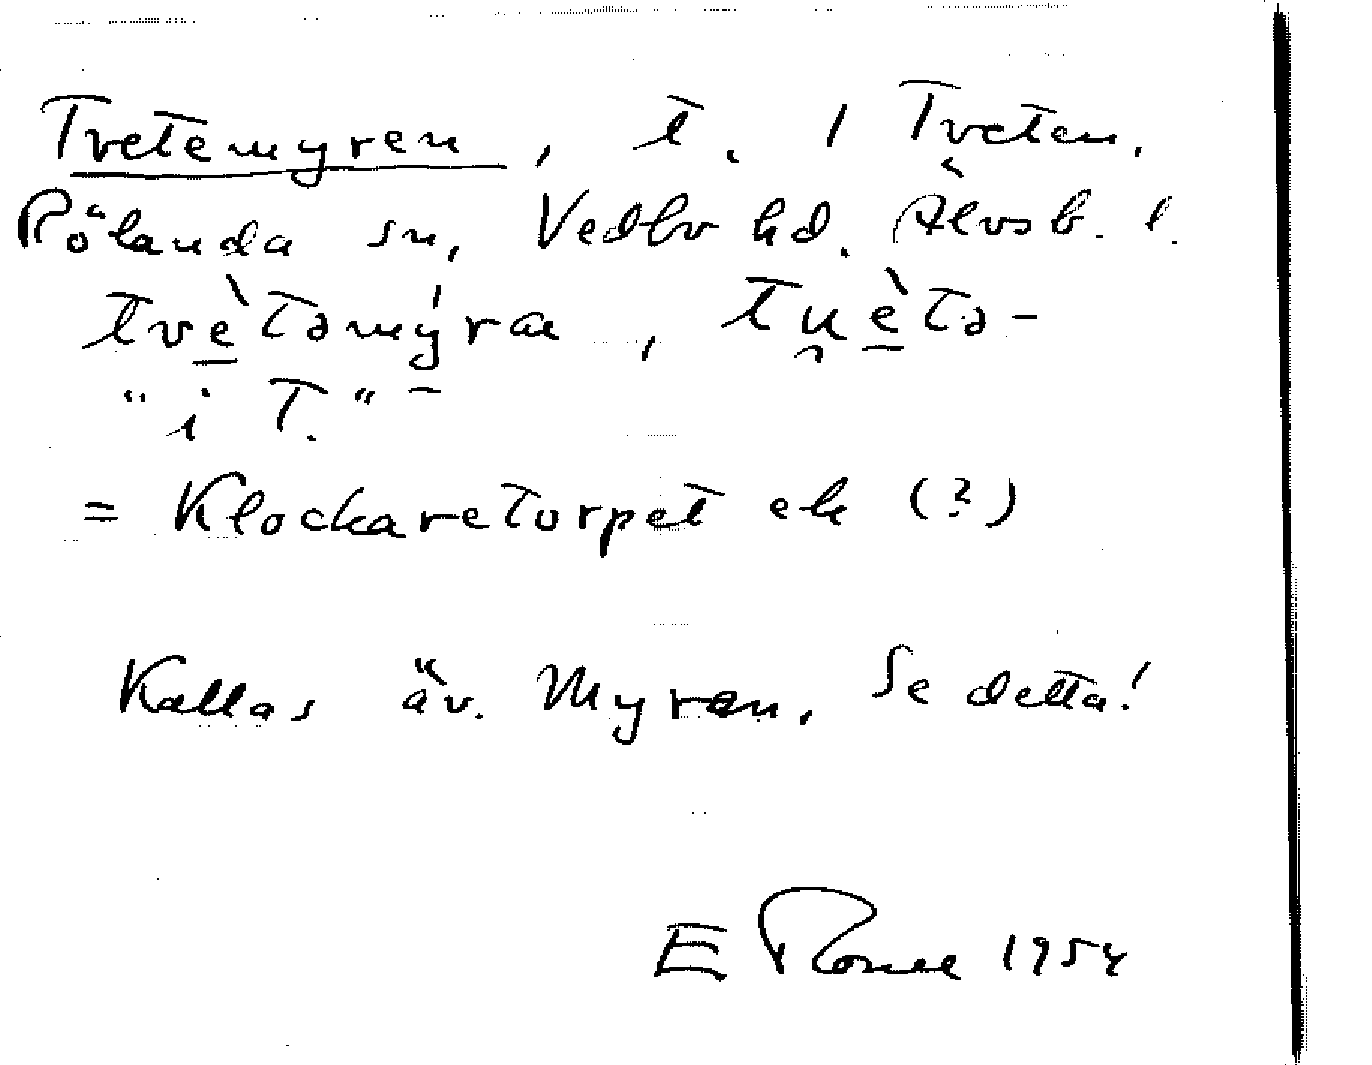 Tvetemyren, t. / Tveten,
Rölanda sn, Vedbo hd. Älvsb. l.
tvètəmýra, tu̯ètə-
"i T." –
= Klockaretorpet ek (?)
Kallas äv. Myren, Se detta!
E 1954